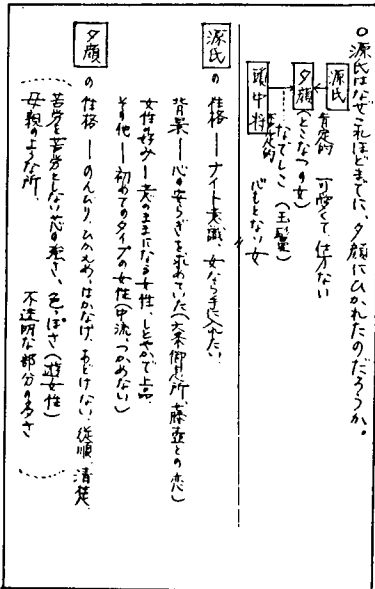 ○源氏はなぜこれほどまでに、夕顔にひかれたのだろうか。
源氏
肯定的 可愛くて仕方ない
夕顔(とこなつの女)
なでしこ(玉鬘)
頭中将
否定的 心もとない女
源氏の性格―ナイト意識、女なら手に入れたい
背景―心の安らぎを求めていた(六条御息所、藤壺との恋)
女性の好み―意のままになる女性、しとやかで上品
その他―初めてのタイプの女性(中流、つかめない)
夕顔の性格―のんびり、ひかえめ、はかなげ、あどけない、従順、清楚
苦労を苦労としない芯の強さ、色っぽさ(遊女性)
母親のような所、不透明な部分の多さ